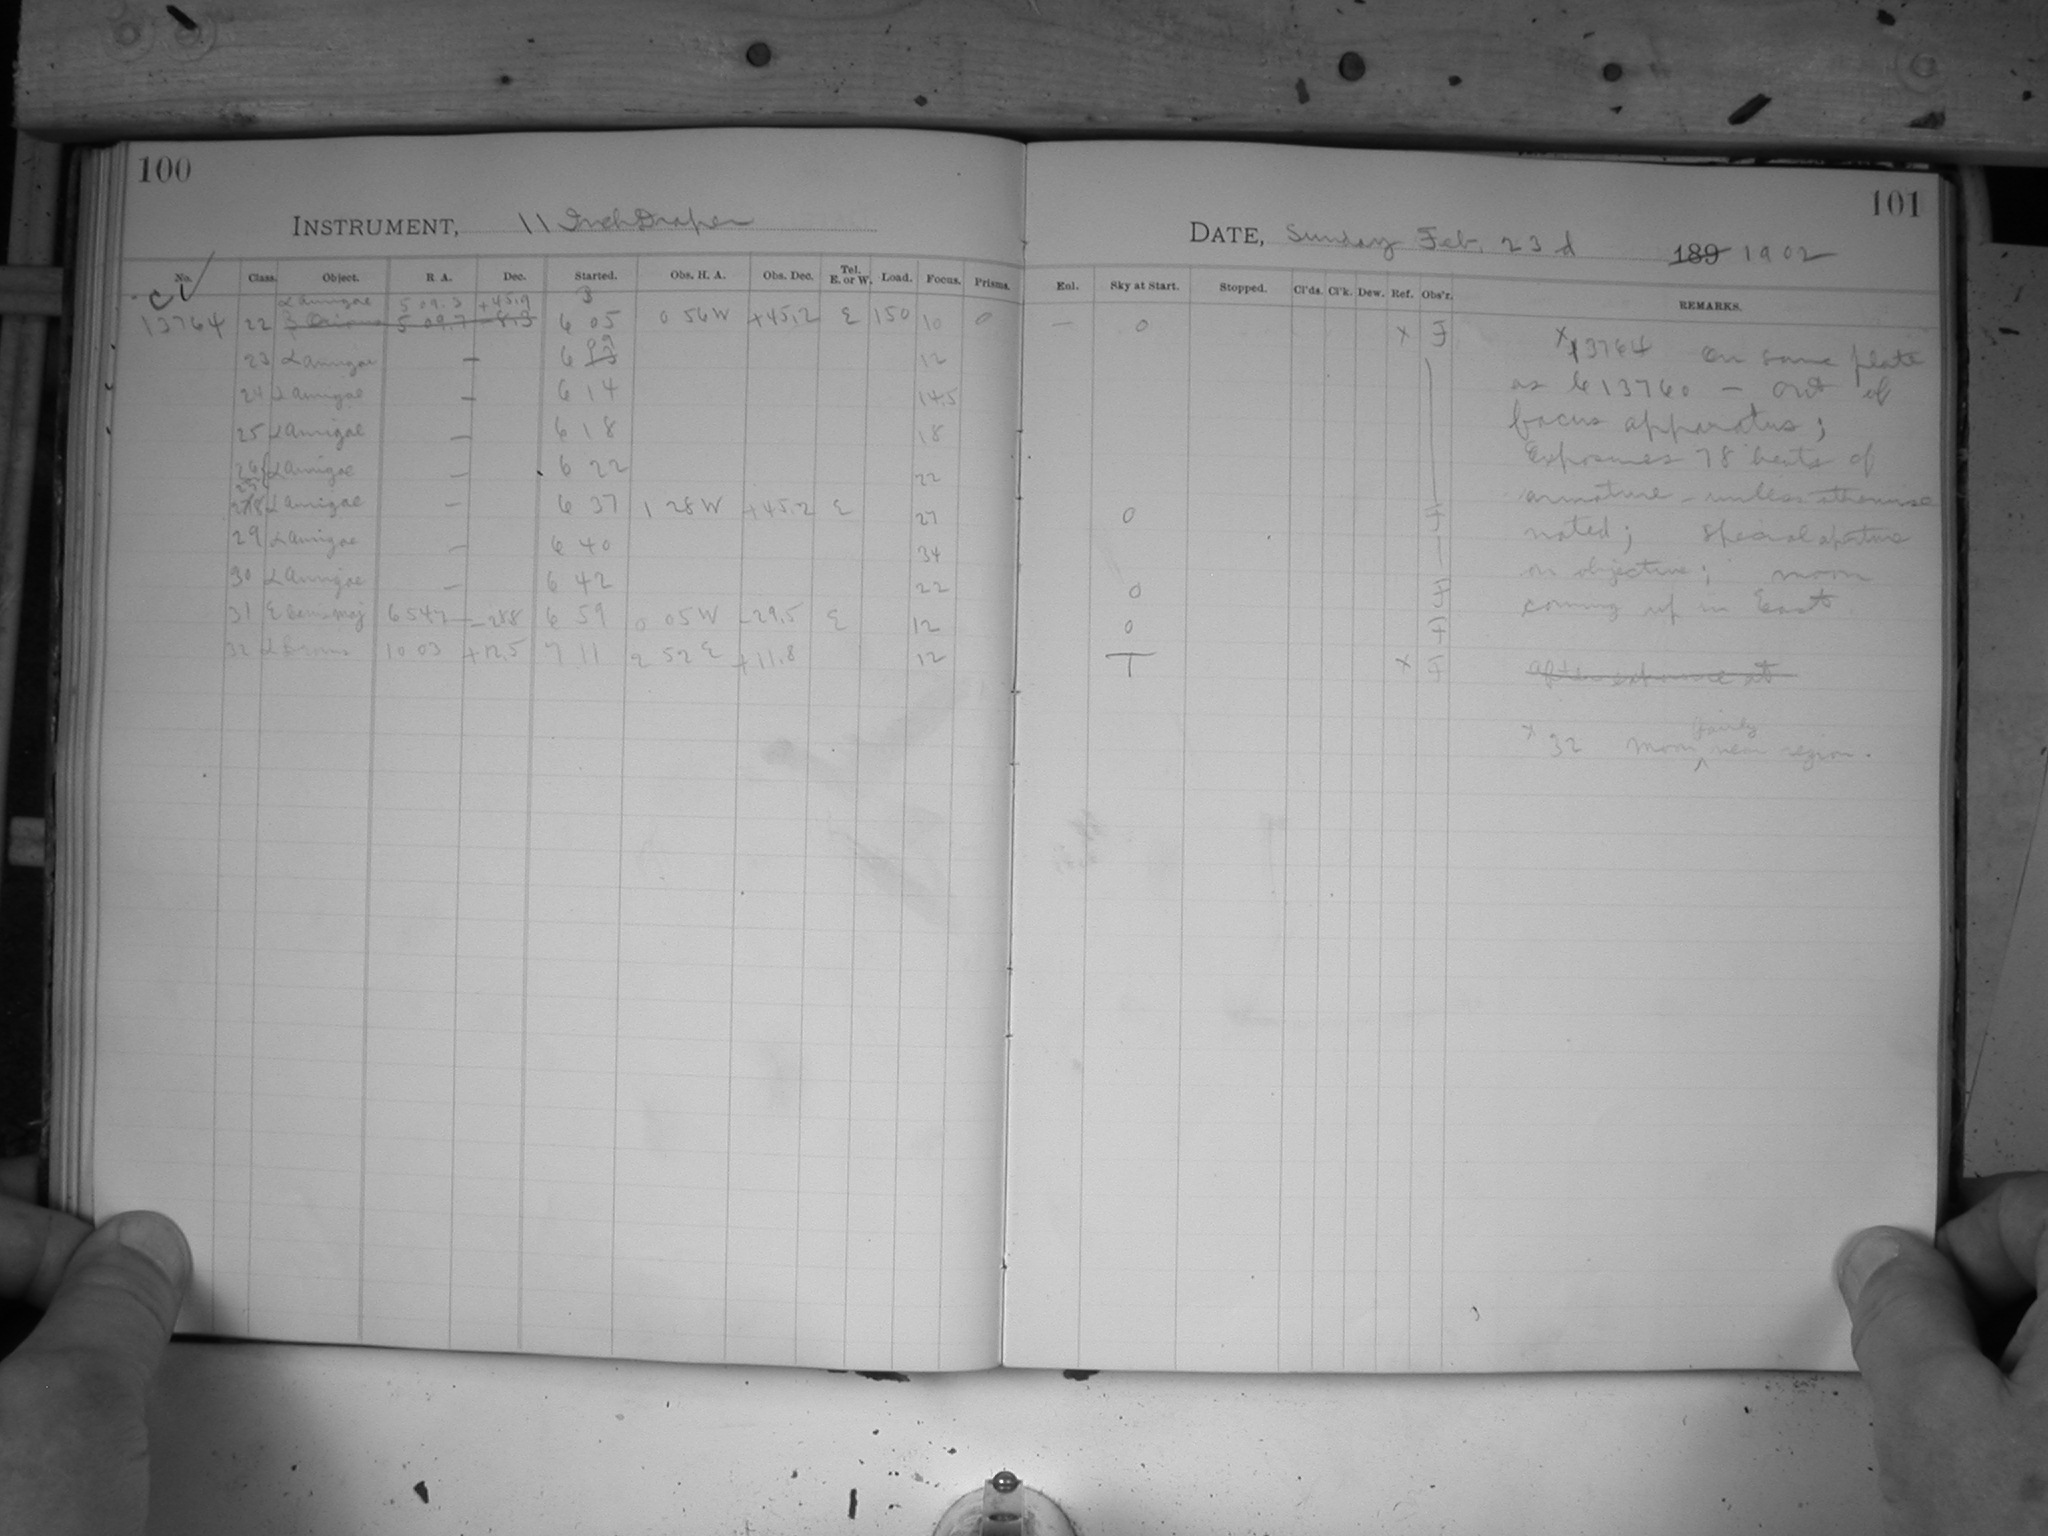 100
INSTRUMENT, 11 Inch Draper
No. Class. Object. R. A. Dec. Started. Obs. H. A. Obs. Dec. Tel. E. or W. Load. Focus. Prisms.
C
α Aurigae 5 09.3 +45.9 3
13764 22 5 09.7 -8.3 6 05 0 56 W +45.2 E 150 10 0
23 α Aurigae — 6 09 12
24 α Aurigae — 6 14 14.5
25 α Aurigae — 6 18 18
26 α Aurigae — 6 22 22
28 α Aurigae — 6 37 1 28 W +45.2 E 27
29 α Aurigae — 6 40 34
30 α Aurigae — 6 42 22
31 ε Canis Maj 6 54.7 -28.8 6 59 0 05 W -29.5 E 12
32 α Leonis 10 03 +12.5 7 11 2 52 E +11.8 12
101
DATE, Sunday Feb. 23 d 189 1902
Enl. Sky at Start. Stopped. Cl'ds. Cl'k. Dew. Ref. Obs'r. REMARKS.
— 0 x F
0 F
0 F
0 F
T x F
x 13764 On same plate
as C 13760 — out of
focus apparatus;
Exposures 78 beats of
armature — unless otherwise
noted; special aperture
on objective; moon
coming up in East
after exposure at
fairly
x 32 moon ^ near region.